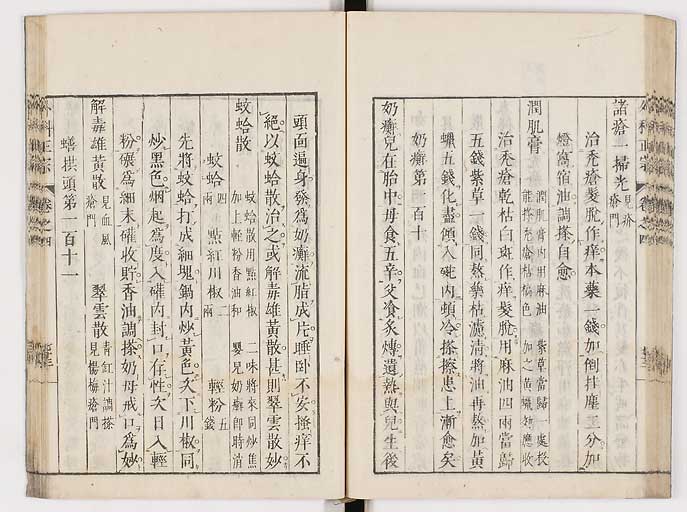 外科正宗
卷之四
諸瘡一掃光見疥瘡門
治禿瘡髮脫作痒本藥一錢加倒挂塵三分加
燈窩宿油調搽自愈
潤肌膏潤肌膏內用麻油 紫草當歸一處投
能搽禿瘡枯槁色 加之黃蠟效應收
治禿瘡乾枯白斑作痒髮脫用麻油四兩當歸
五錢紫草一錢同熬藥枯濾清將油再熬加黃
蠟五錢化盡傾入碗內頓冷搽擦患上漸愈矣
奶癬第一百十
奶癬兒在胎中母食五辛父飡炙煿遺熱與兒生後
頭面遍身發為奶癬流脂成片睡臥不安搔痒不
絕以蚊蛤散治之或解毒雄黃散甚則翠雲散妙
蚊蛤散蚊蛤散用點紅椒 二味將來同炒焦
加上輕粉香油和 嬰兒奶癬即時消
蚊蛤四兩 點紅川椒二兩 輕粉五錢
先將蚊蛤打成細塊鍋內炒黃色次下川椒同
炒黑色烟起為度入礶內封口存性次日入輕
粉碾為細末礶收貯香油調搽奶母戒口為妙
解毒雄黃散見血風瘡門 翠雲散青缸汁調搽見楊梅瘡門
蟮拱頭第一百十一
外科正宗
卷之四